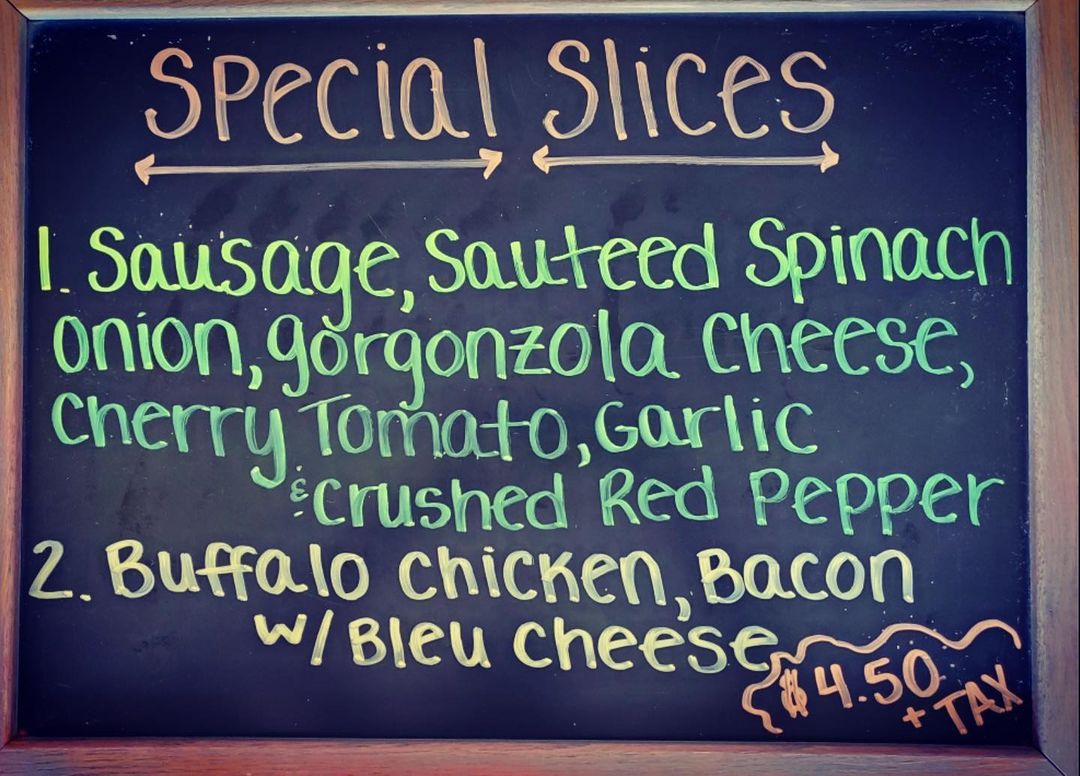 Special Slices
1. Sausage, Sauteed Spinach
Onion, gorgonzola Cheese,
Cherry Tomato, Garlic
& Crushed Red Pepper
2. Buffalo Chicken, Bacon
w/ Bleu Cheese
$4.50
+ TAX